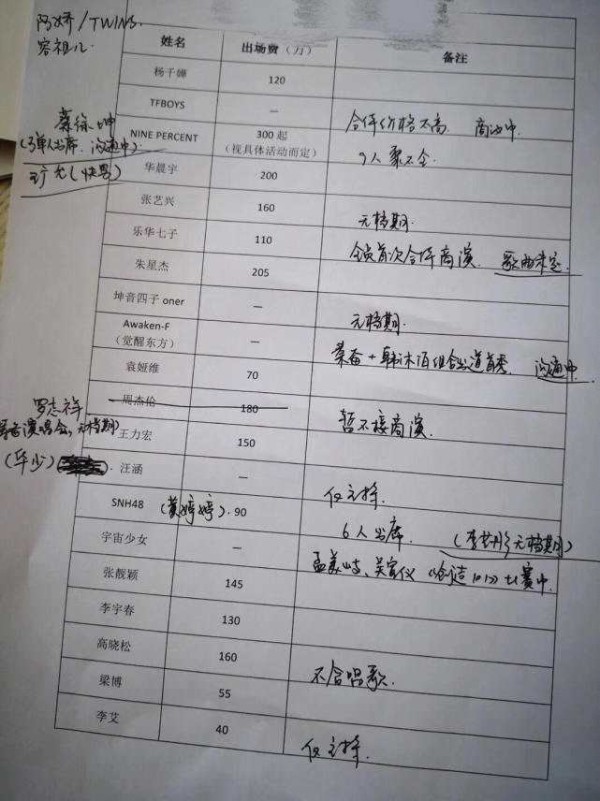 阿娇/TWINS.
容祖儿.
姓名 出场费（万） 备注
杨千嬅 120
TFBOYS — 合体价格不高 商治中
蔡徐坤
(单人出席. 沟通中)
NINE PERCENT 300 起
(视具体活动而定) 9人聚不全
(快男)
华晨宇 200
张艺兴 160 无档期
乐华七子 110 全员首次合体商演. 歌曲未定.
朱星杰 205
坤音四子 oner — 无档期.
Awaken-F
（觉醒东方） — 秦奋+韩沐伯组合出道首秀 沟通中.
袁娅维 70
罗志祥
演唱会, 无档期)
周杰伦 180 暂不接商演.
王力宏 150
(华少)
汪涵 — 仅主持.
SNH48 (黄婷婷). 90 6人出席. (李艺彤无档期)
宇宙少女 — 孟美岐、吴宣仪《创造101》比赛中
张靓颖 145
李宇春 130
高晓松 160 不含唱歌.
梁博 55
李艾 40 仅主持.